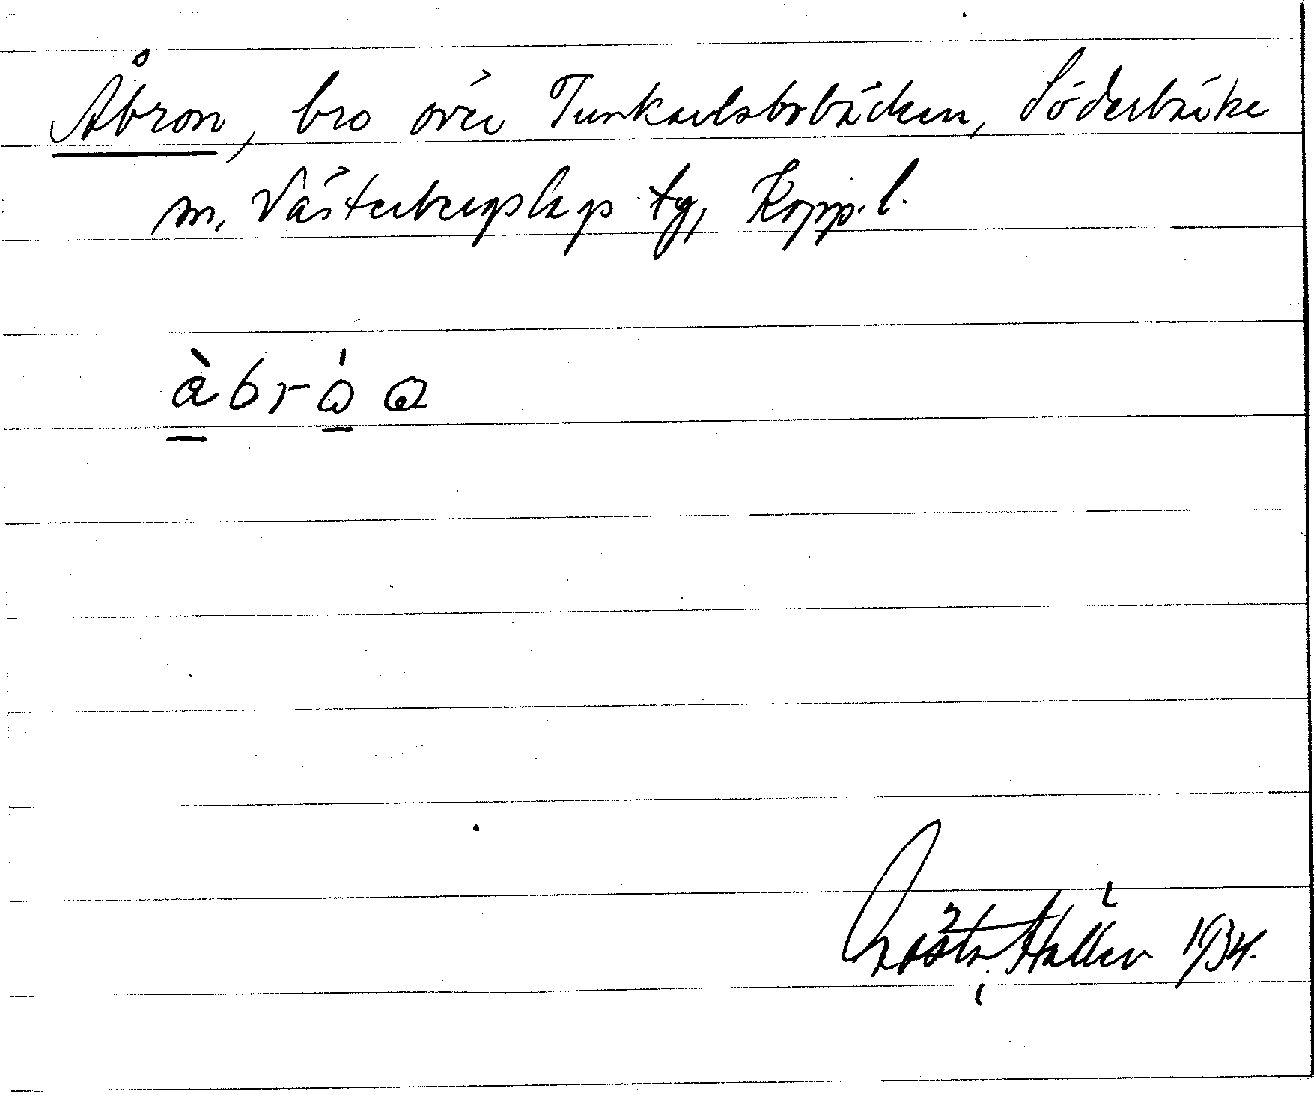 Åbron, bro över Tunkarlsbobäcken, Söderbärke
sn, Västerbergslags tg, Kopp. l.
àbróo
Gösta Hallén 1934.